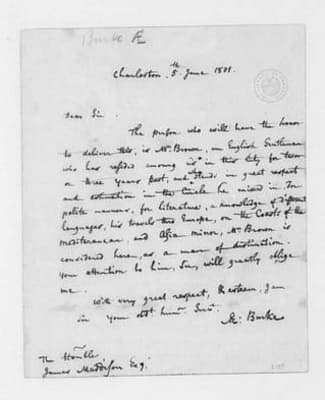 Burke Æ
Charleston, 5th June 1801.
Dear Sir.
The person who will have the honor
to deliver this, is Mr. Brown, an English Gentleman
who has resided among us in this City for two
or three years past, and stands in great respect
and estimation in the circle he mixed in. For
polite manners, for literature, a knowledge of different
languages, his travels thro Europe, on the Coasts of the
mediteranean, and Asia minor, Mr. Brown is
considered here, as a man of distinction.
your attention to him, Sir, will greatly oblige
me.
with very great respect, & esteem, I am
Sir your obt. humle. Servt.
Æ. Burke
The Honble
James Maddison Esqr.